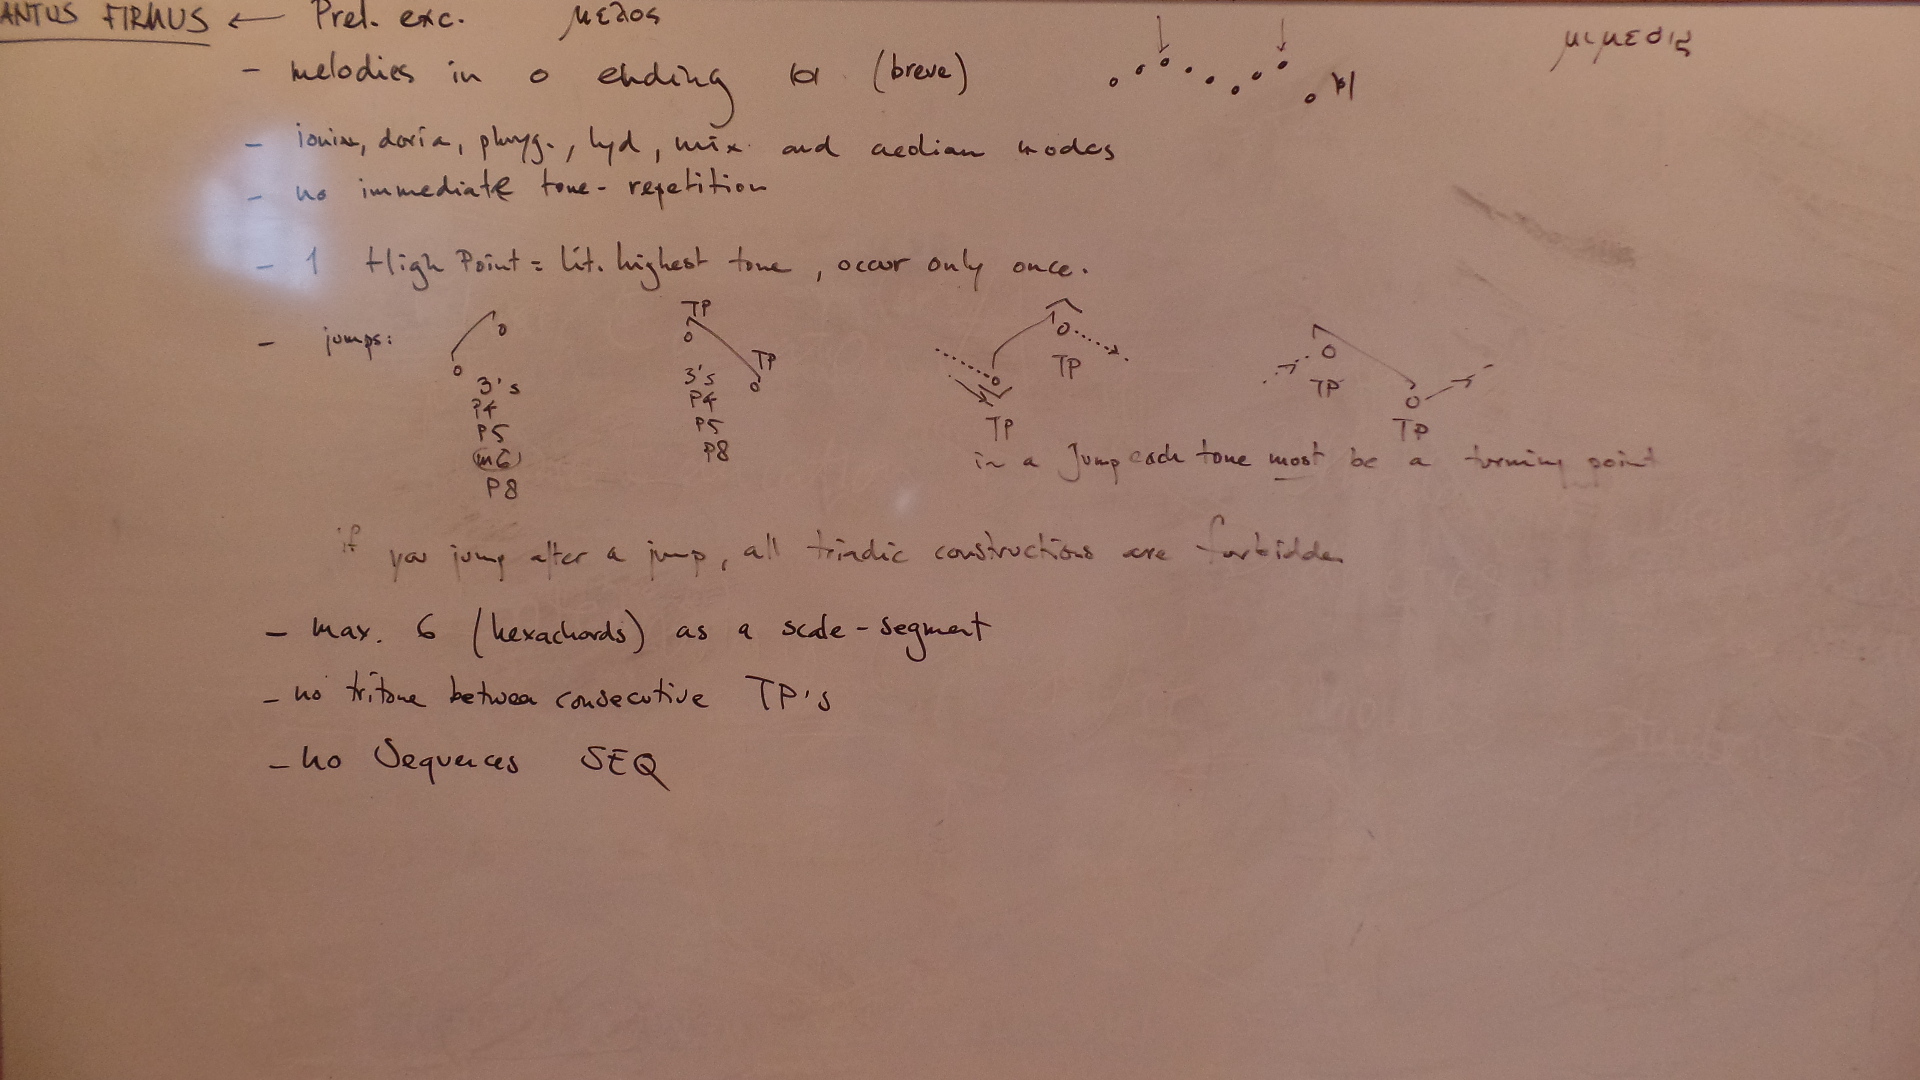 ANTUS FIRMUS ← Prel. exc. μελος
μιμεσις
- melodies in o ending |o| (breve)
- ionian, doria, phryg., lyd, mix. and aeolian modes
- no immediate tone-repetition
- 1 High Point = lit. highest tone, occur only once.
- jumps:
3's
P4
P5
m6
P8
TP
TP
3's
P4
P5
P8
TP
TP
TP
TP
in a Jump each tone must be a turning point
if you jump after a jump, all triadic constructions are forbidden
- max. 6 (hexachords) as a scale-segment
- no tritone between consecutive TP's
- no Sequences SEQ